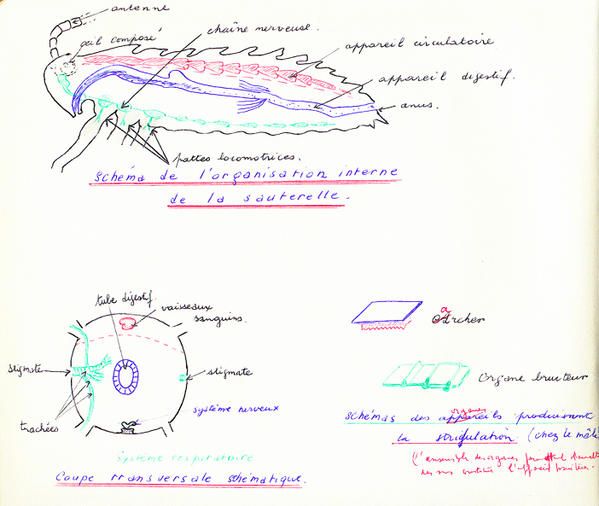 antenne
œil composé
chaîne nerveuse.
appareil circulatoire
appareil digestif.
anus.
pattes locomotrices.
Schéma de l'organisation interne
de la sauterelle.
tube digestif.
vaisseaux
sanguins.
stigmate
stigmate
trachées
système nerveux
système respiratoire
Coupe transversale schématique.
Archer
Organe bruiteur
organes
Schémas des appareils produisant
la stridulation (chez le mâle
(l'ensemble des organes
des sons